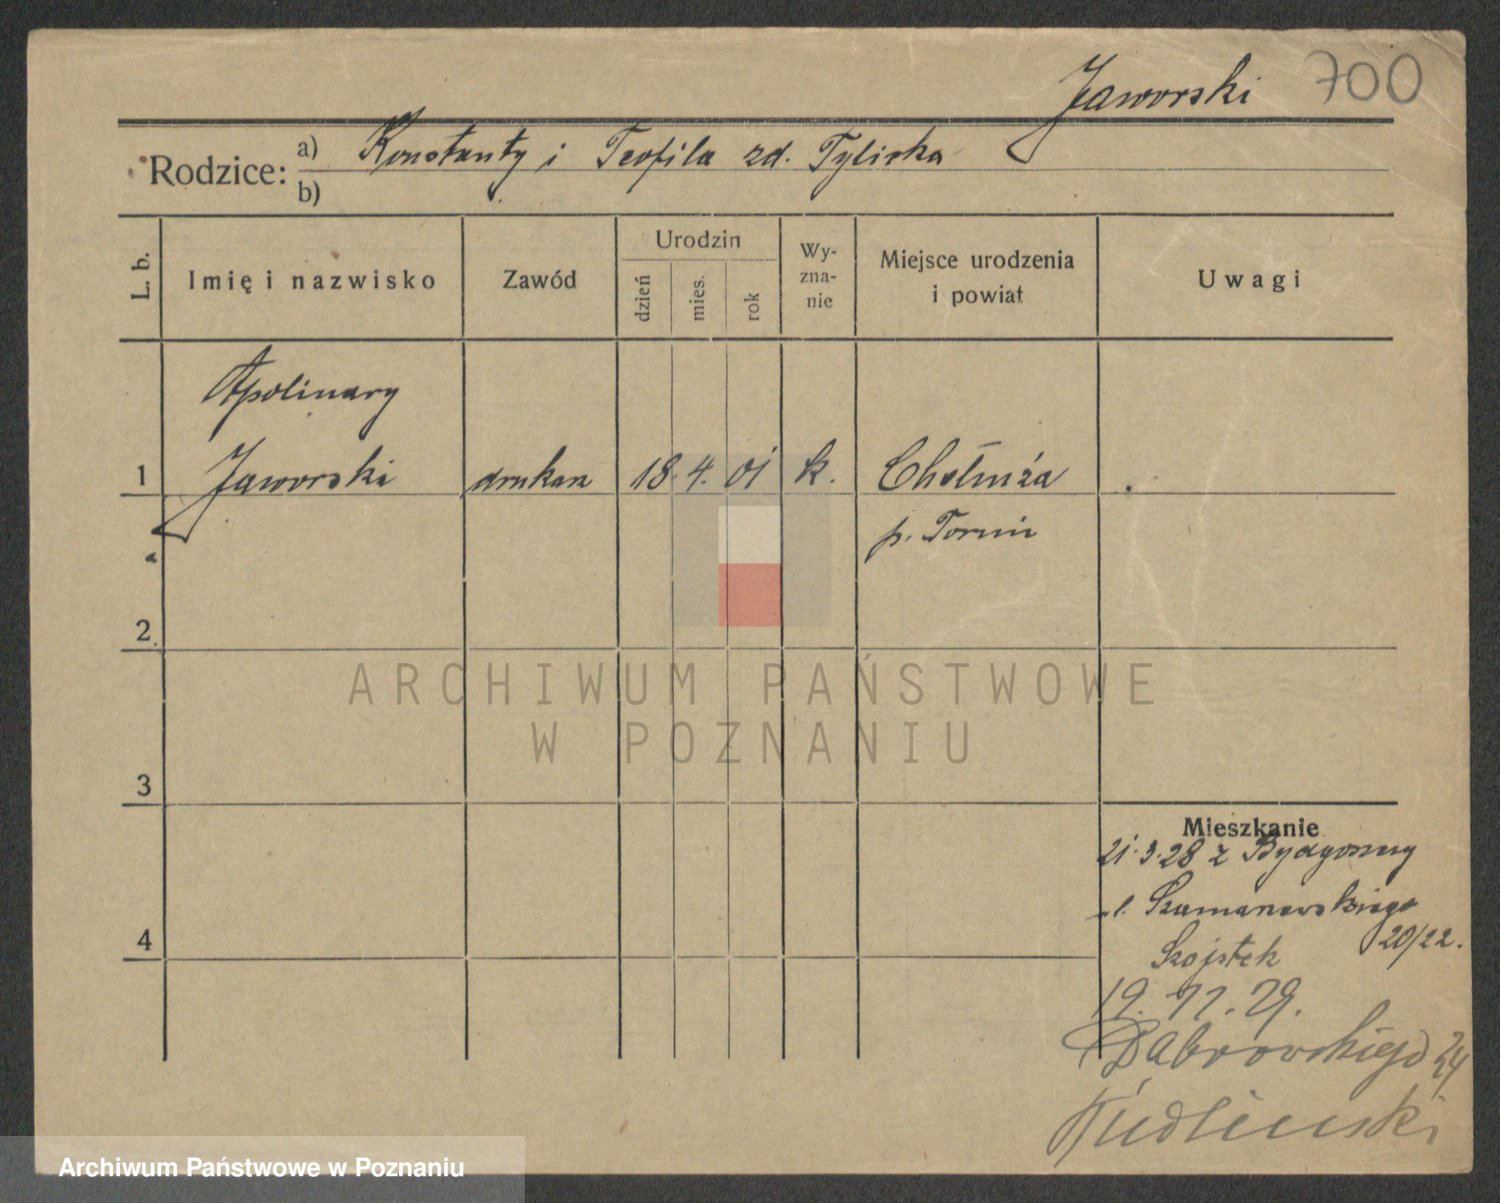 Jaworski 700
Rodzice: a) Konstanty i Teofila zd. Tyliska
b)
L. b.
Imię i nazwisko
Zawód
Urodzin
dzień
mies.
rok
Wy-
zna-
nie
Miejsce urodzenia
i powiat
Uwagi
Apolinary
1 Jaworski drukarz 18. 4. 01 k. Chełmża
p. Toruń
2
ARCHIWUM PAŃSTWOWE
W POZNANIU
3
Mieszkanie
21.3.28 z Bydgoszczy
ul. Szamarzewskiego
20/22.
Szojstek
4
19. 11. 29.
Dąbrowskiego 24
Archiwum Państwowe w Poznaniu